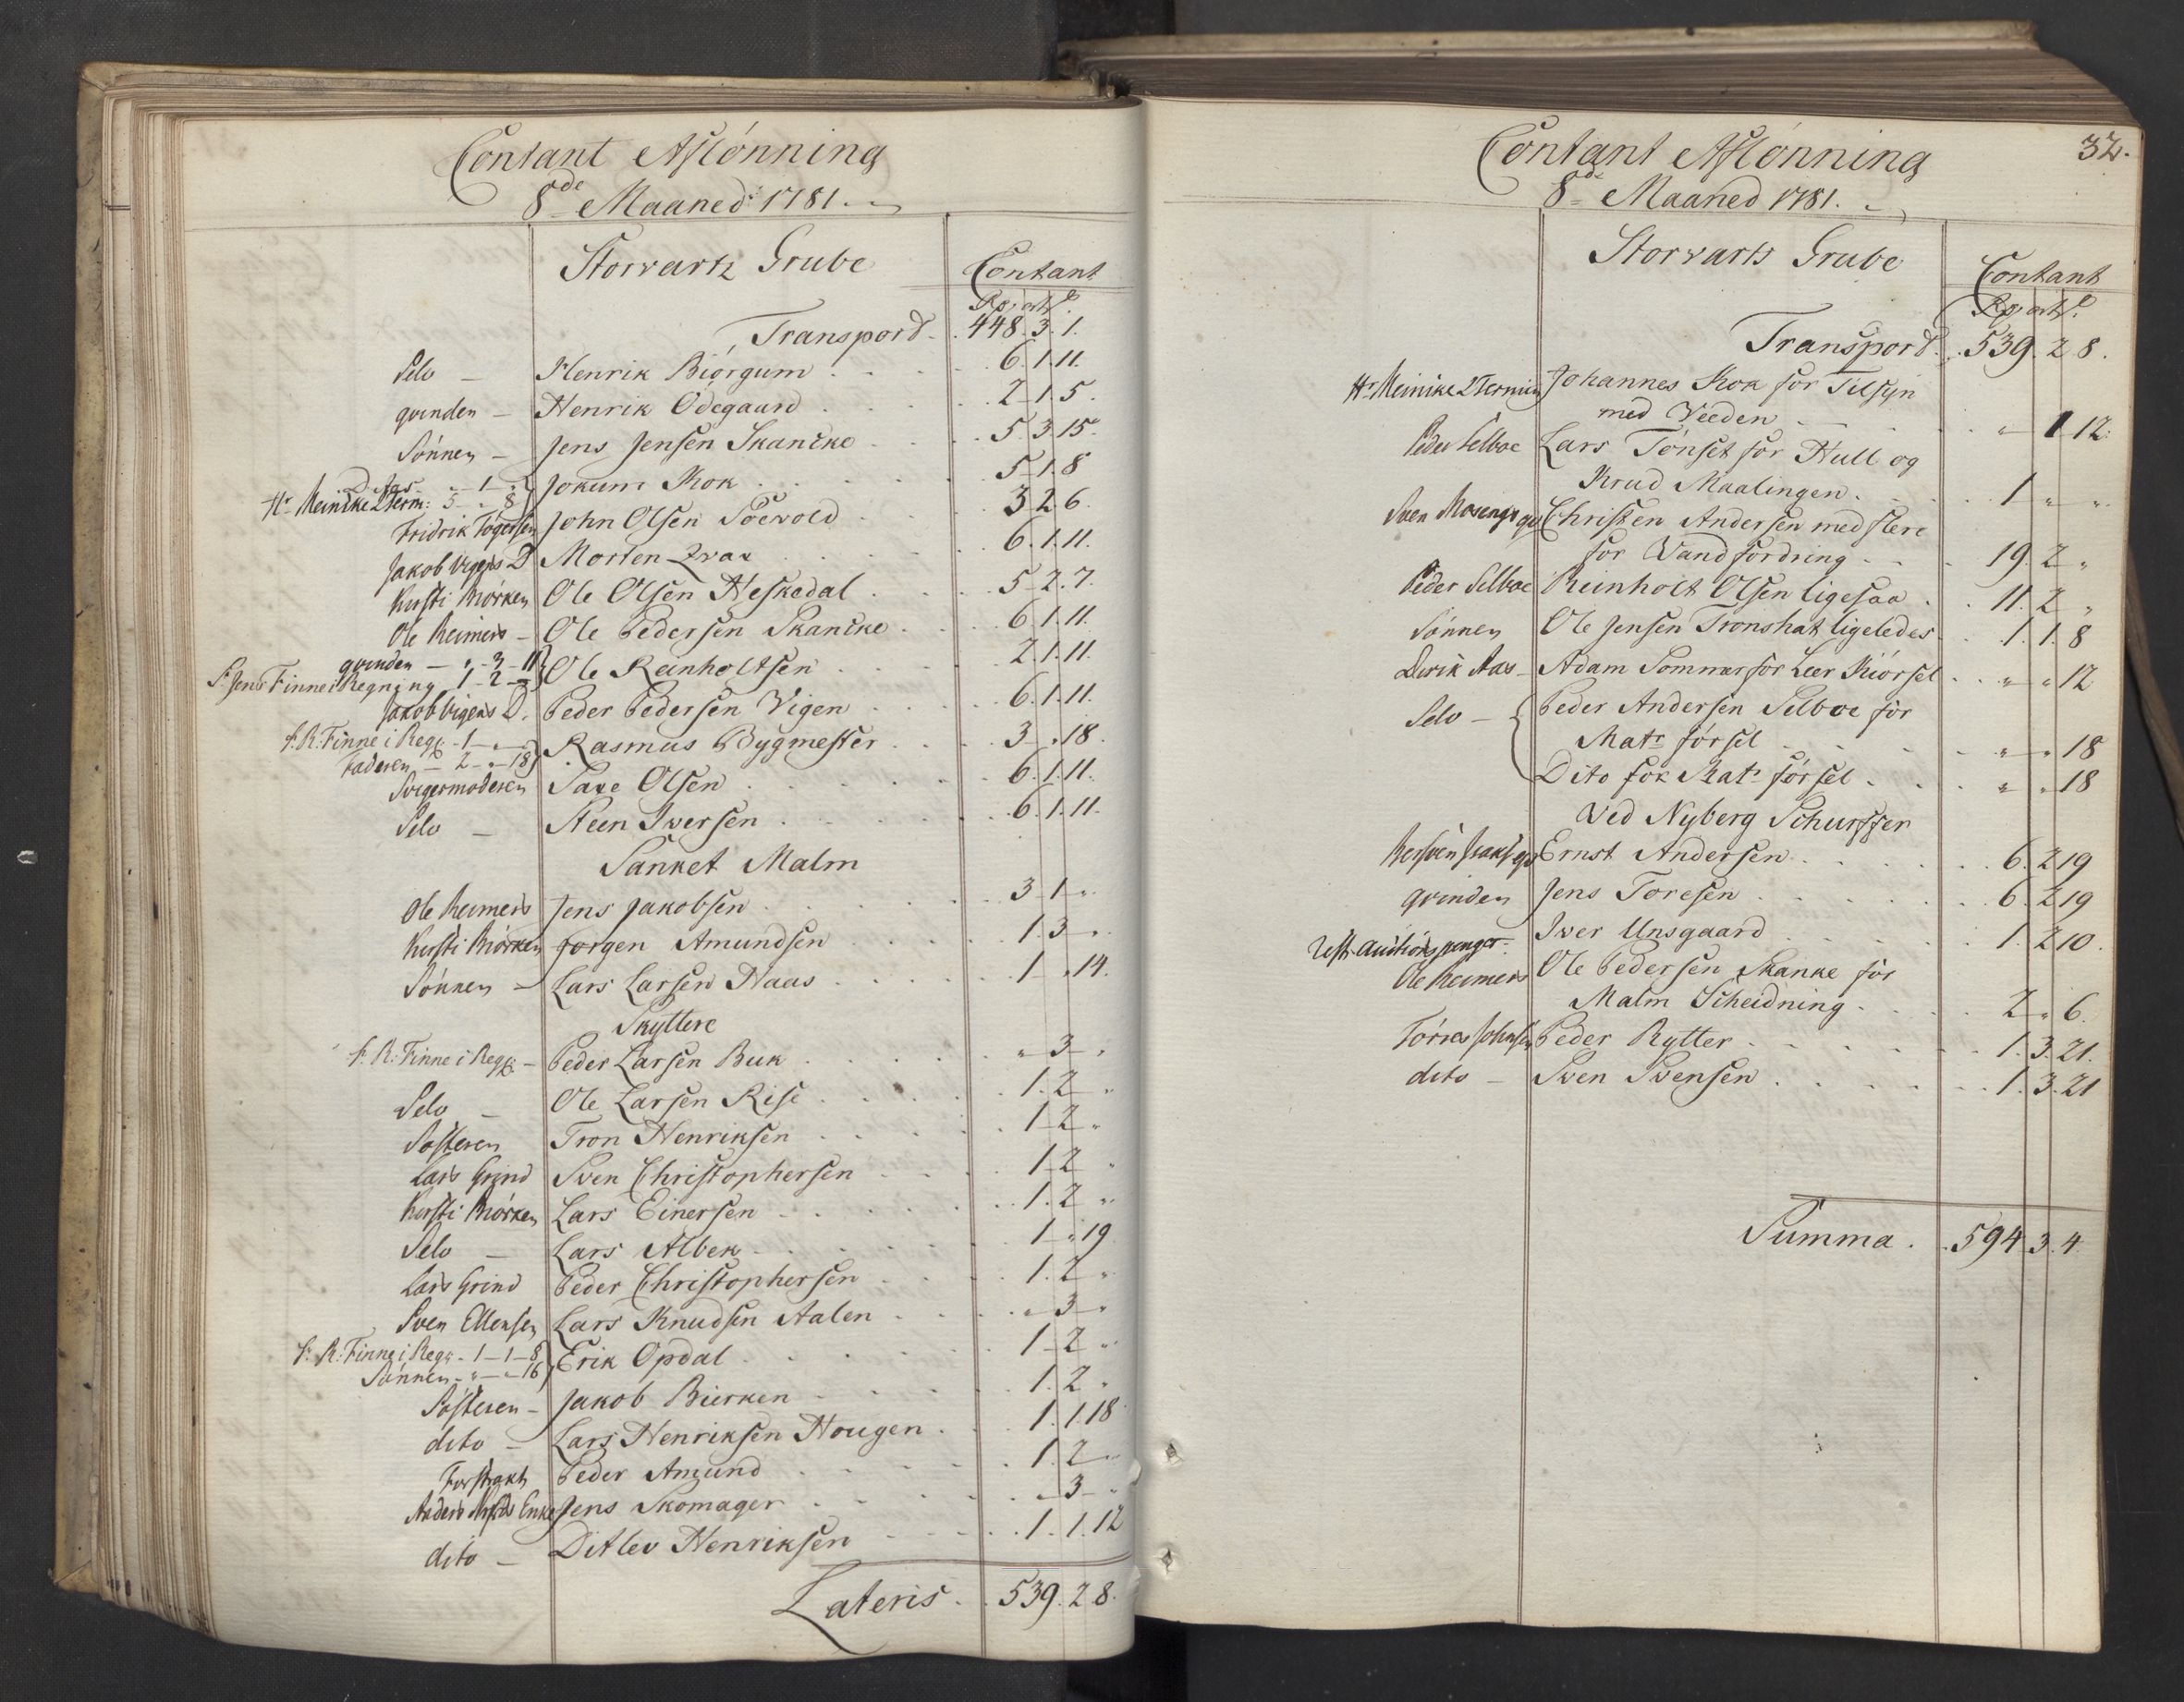 Contant Aflönning
8de Maaned 1781.
Storvartz Grube
Contant
Rd. ort. s.
Transport 448. 3. 1.
Selv — Henrik Biörgum 6. 1. 11.
qvinden — Henrik Ödegaard 2. 1. 5.
Sönnen — Jens Jensen Skancke 5. 3. 15.
Hr. Meincke 2 Term: 5 " 8 Jokum Kok 5. 1. 8
Fridrik Fögersen John Olsen Söevold 3 2 6.
Jakob Vigens D Morten Qvan 6. 1. 11.
Kirsti Mörken Ole Olsen Heskedal 5. 2. 7.
Ole Reimers — Ole Pedersen Skancke 6. 1. 11.
qvinden — " - 3 - 11
S. Jens Finne i Regning 1 - 2 - " Ole Reinholtsen 2. 1. 11.
Jakob Vigens D. Peder Pedersen Vigen 6. 1. 11.
S. R: Finne i Regg - 1 - " - "
Faderen — 2 - " - 18 Rasmus Bygmester 3 " 18.
Svigermoderen Saxe Olsen 6. 1. 11.
Selv — Steen Iversen 6. 1. 11.
Sanket Malm
Ole Reimers Jens Jakobsen 3. 1 "
Kirsti Mörken Jorgen Amundsen 1. 3 "
Sönnen — Lars Larsen Haas 1 " 14.
Skyttere
S. R: Finne i Regg — Peder Larsen Buk " 3 "
Selv — Ole Larsen Rise 1. 2 "
Sösteren Tron Henriksen 1. 2 "
Lars Grind Sven Christophersen 1. 2 "
Kirsti Mörken Lars Einersen 1. 2 "
Selv — Lars Albek 1 " 19
Lars Grind Peder Christophersen 1. 2 "
Sven Ellensen Lars Knudsen Aalen " 3 "
S. R: Finne i Regg - 1 - 1 - 8
Sönnen - " - " - 16 Erik Opdal 1. 2 "
Sösteren — Jakob Bierken 1. 2 "
dito — Lars Henriksen Hougen 1. 1. 18
Forstrakt Peder Amund 1. 2 "
Anders Enke Jens Skomager " 3 "
dito — Ditlev Henriksen 1. 1. 12
Lateris 539. 2 8.
32.
Contant Aflönning
8de Maaned 1781.
Storvarts Grube
Contant
Rd. ort. s.
Transport 539. 2 8.
Hr. Meincke 2 Termin Johannes Kok for Tilsyn
med Veeden " 1 12.
Peder Selboe Lars Tönset for Hull og
Krud Maalingen 1 " "
Sven Mosengs qv Christen Andersen med flere
for Vandfordring 19. 2 "
Peder Selboe Reinholt Olsen ligesaa 11. 2 "
Sönnen Ole Jensen Tronshat ligeledes 1. 1. 8
Dirik Aas — Adam Sommer for Leer Kiörsel " " 12
Selv — Peder Andersen Selboe for
Matr. försel " " 18
Dito for Matr. försel " " 18
Ved Nyberg Schurffer
qv Ernst Andersen 6. 2 19
qvinden Jens Toresen 6. 2 19
Rest. Auctions penger Iver Unsgaard 1. 2 10.
Ole Reimers Ole Pedersen Skanke for
Malm Scheidning 2 " 6.
Törres Johnsen Peder Rytter 1. 3. 21.
dito — Sven Svensen 1. 3. 21
Summa 594 3. 4.